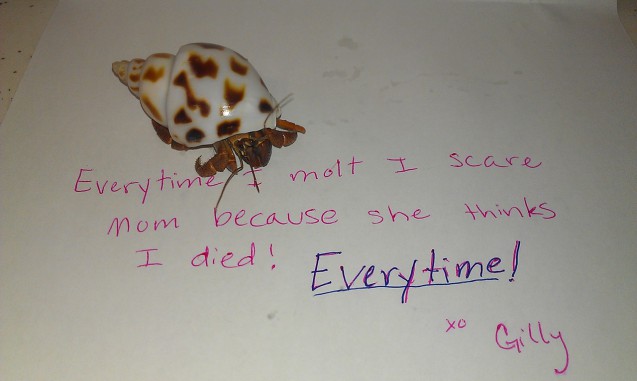 Everytime I molt I scare
Mom because she thinks
I died! Everytime!
xo Gilly